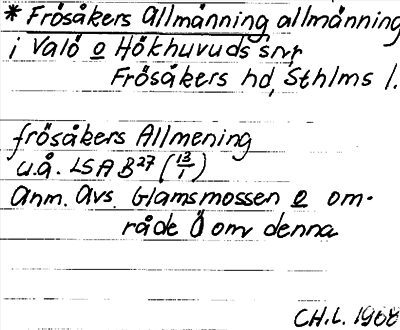 * Frösåkers Allmänning allmänning
i Valö o Hökhuvuds snr
Frösåkers hd, Sthlms l.
frösåkers Allmening
u.å. LSA B27 (13/1)
Anm. Avs. Glamsmossen o om-
råde Ö om denna
CH.L. 1968